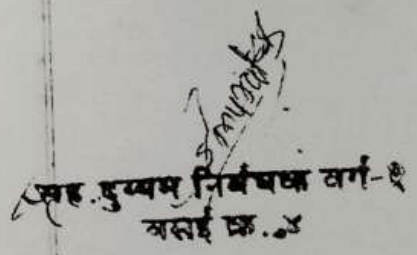 सह. दुय्यम निबंधक वर्ग-२
वसई क्र. ४